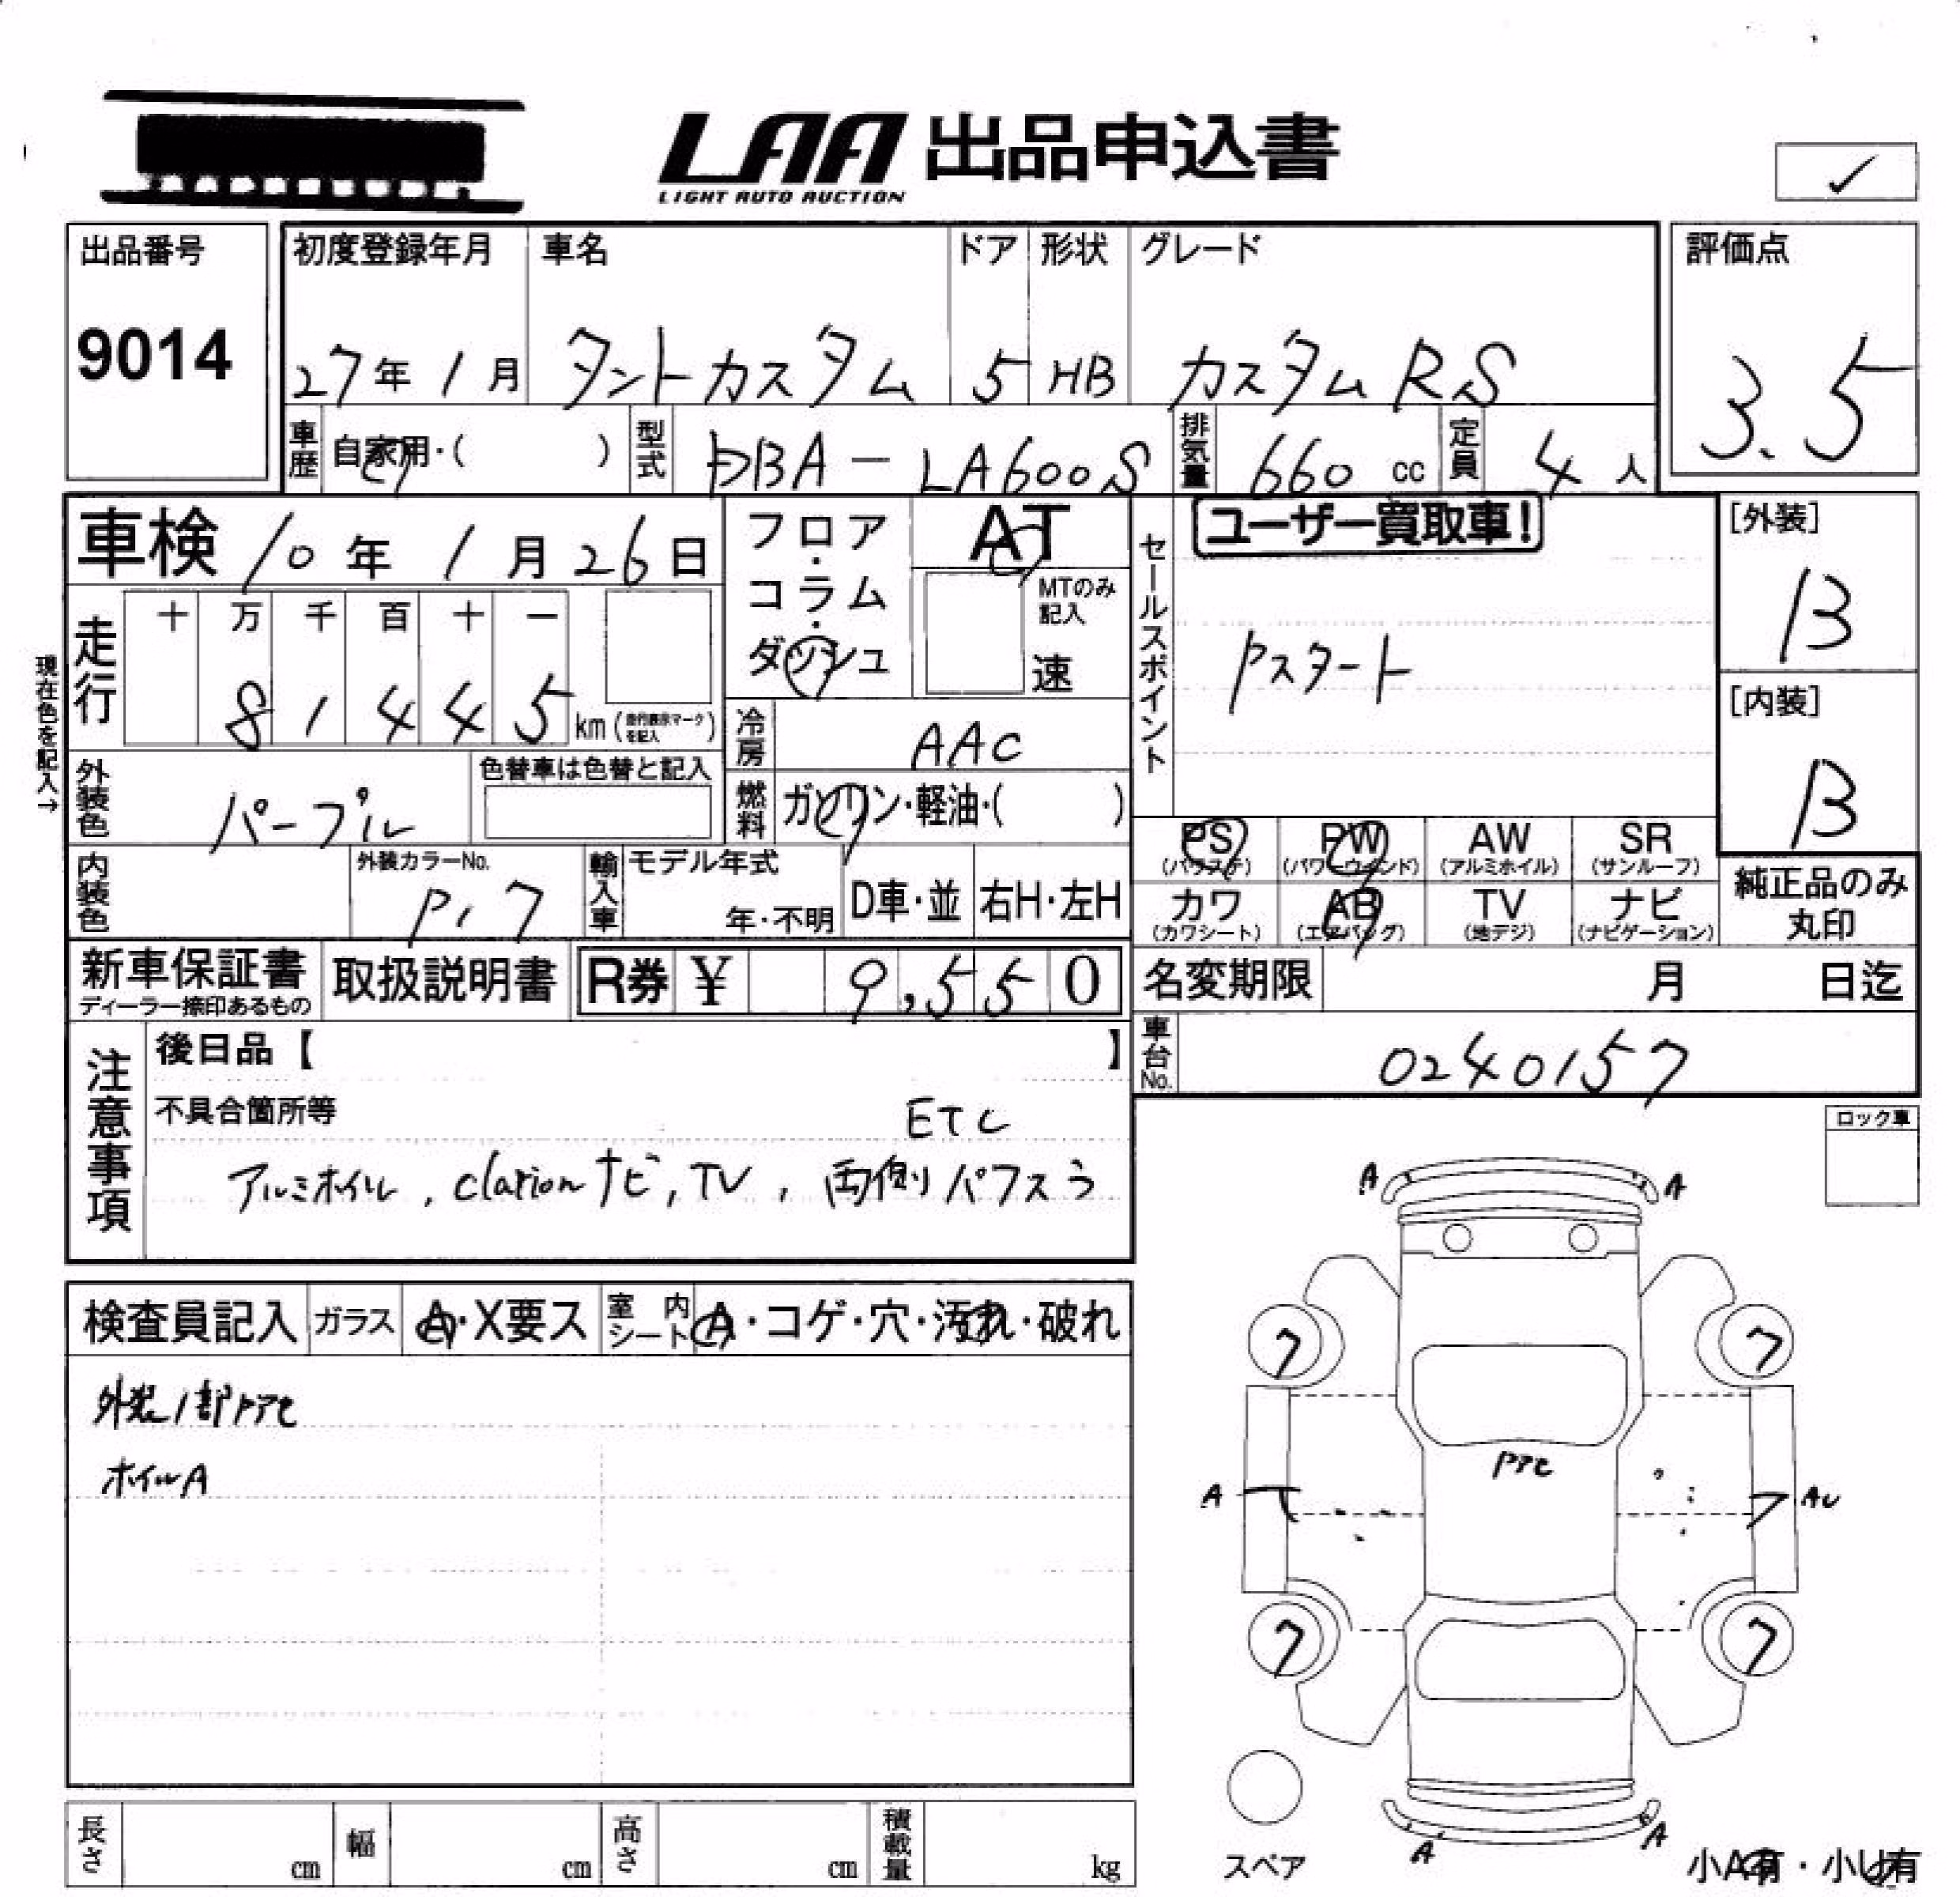 LAA 出品申込書
LIGHT AUTO AUCTION
✓
出品番号
9014
初度登録年月 車名 ドア 形状 グレード
27年 1月 タントカスタム 5 HB カスタムRS
評価点
3.5
車歴 自家用・( ) 型式 DBA-LA600S 排気量 660 cc 定員 4人
車検 10年 1月 26日
フロア・コラム・ダッシュ
AT
MTのみ記入
速
セールスポイント
ユーザー買取車!
Pスタート
[外装]
B
[内装]
B
現在色を記入→
走行 十 万 千 百 十 一
8 1 4 4 5 km (走行表示マークを記入)
冷房 AAC
外装色 パープル 色替車は色替と記入
燃料 ガソリン・軽油・( )
PS (パワステ) PW (パワーウィンド) AW (アルミホイル) SR (サンルーフ)
カワ (カワシート) AB (エアバッグ) TV (地デジ) ナビ (ナビゲーション)
純正品のみ丸印
内装色 外装カラーNo. P17 輸入車 モデル年式 年・不明 D車・並 右H・左H
新車保証書 ディーラー捺印あるもの 取扱説明書 R券 ¥ 9,550
名変期限 月 日迄
車台No. 0240157
注意事項
後日品【 】
不具合箇所等 ETC
アルミホイル, clarionナビ, TV, 両側パワスラ
ロック車
A A
検査員記入 ガラス A・X要ス 室内シート A・コゲ・穴・汚れ・破れ
外装1部
ホイルA
7 7
A AU
7 7
スペア
A A
小A有・小U有
長さ cm 幅 cm 高さ cm 積載量 kg